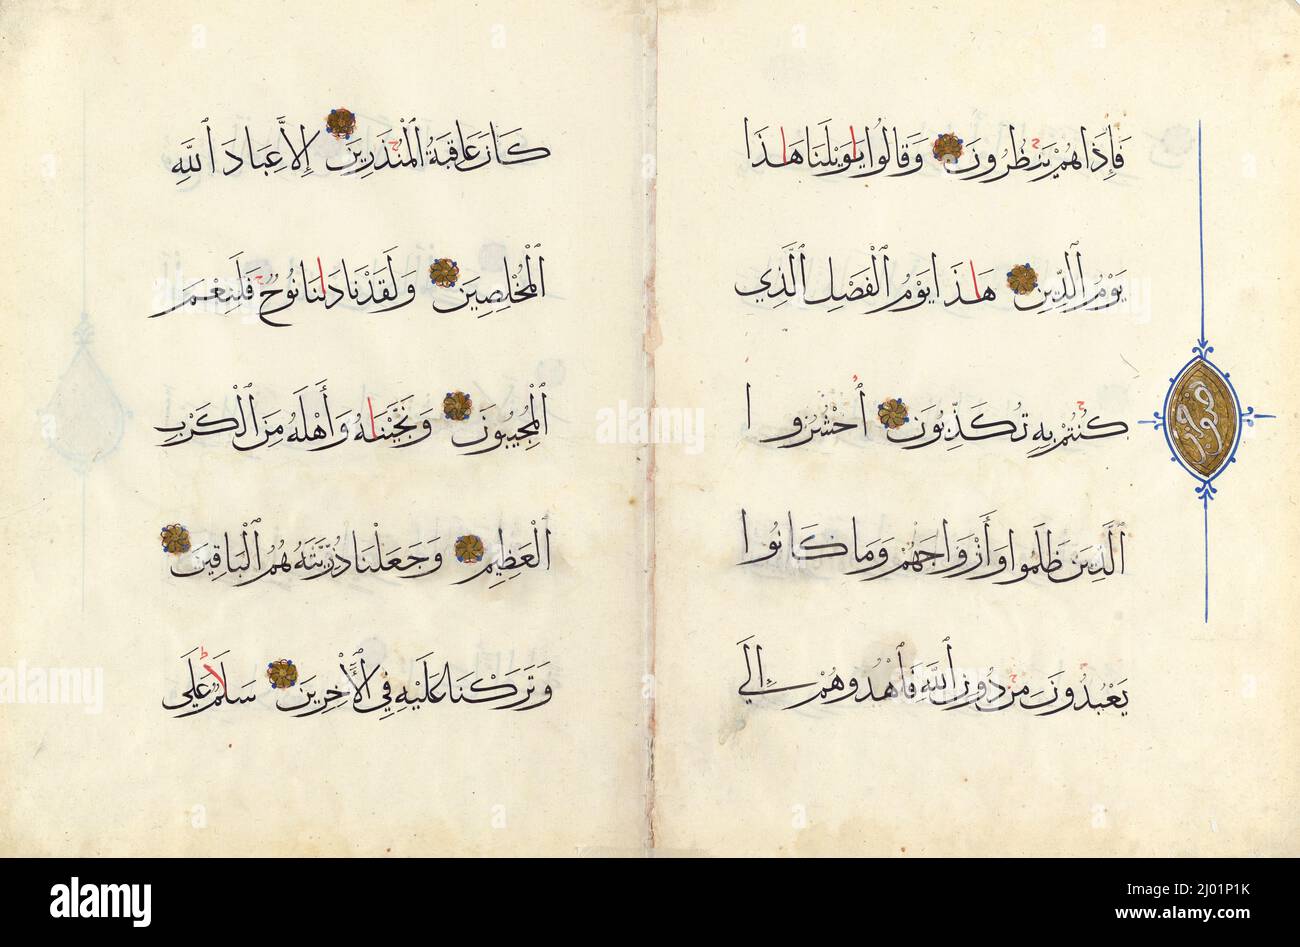 فَإِذَا هُمْ يَنْظُرُونَ وَقَالُوا يَاوَيْلَنَا هَاذَا
يَوْمُ الدِّينِ هَاذَا يَوْمُ الْفَصْلِ الَّذِي
كُنْتُمْ بِهِ تُكَذِّبُونَ احْشُرُوا
الَّذِينَ ظَلَمُوا وَأَزْوَاجَهُمْ وَمَا كَانُوا
يَعْبُدُونَ مِنْ دُونِ اللَّهِ فَاهْدُوهُمْ إِلَى
كَانَ عَاقِبَةُ الْمُنْذَرِينَ إِلَّا عِبَادَ اللَّهِ
الْمُخْلَصِينَ وَلَقَدْ نَادَانَا نُوحٌ فَلَنِعْمَ
الْمُجِيبُونَ وَنَجَّيْنَاهُ وَأَهْلَهُ مِنَ الْكَرْبِ
الْعَظِيمِ وَجَعَلْنَا ذُرِّيَّتَهُ هُمُ الْبَاقِينَ
وَتَرَكْنَا عَلَيْهِ فِي الْآخِرِينَ سَلَامٌ عَلَى
alamy
alamy
Image ID: 2J01P1K
www.alamy.com